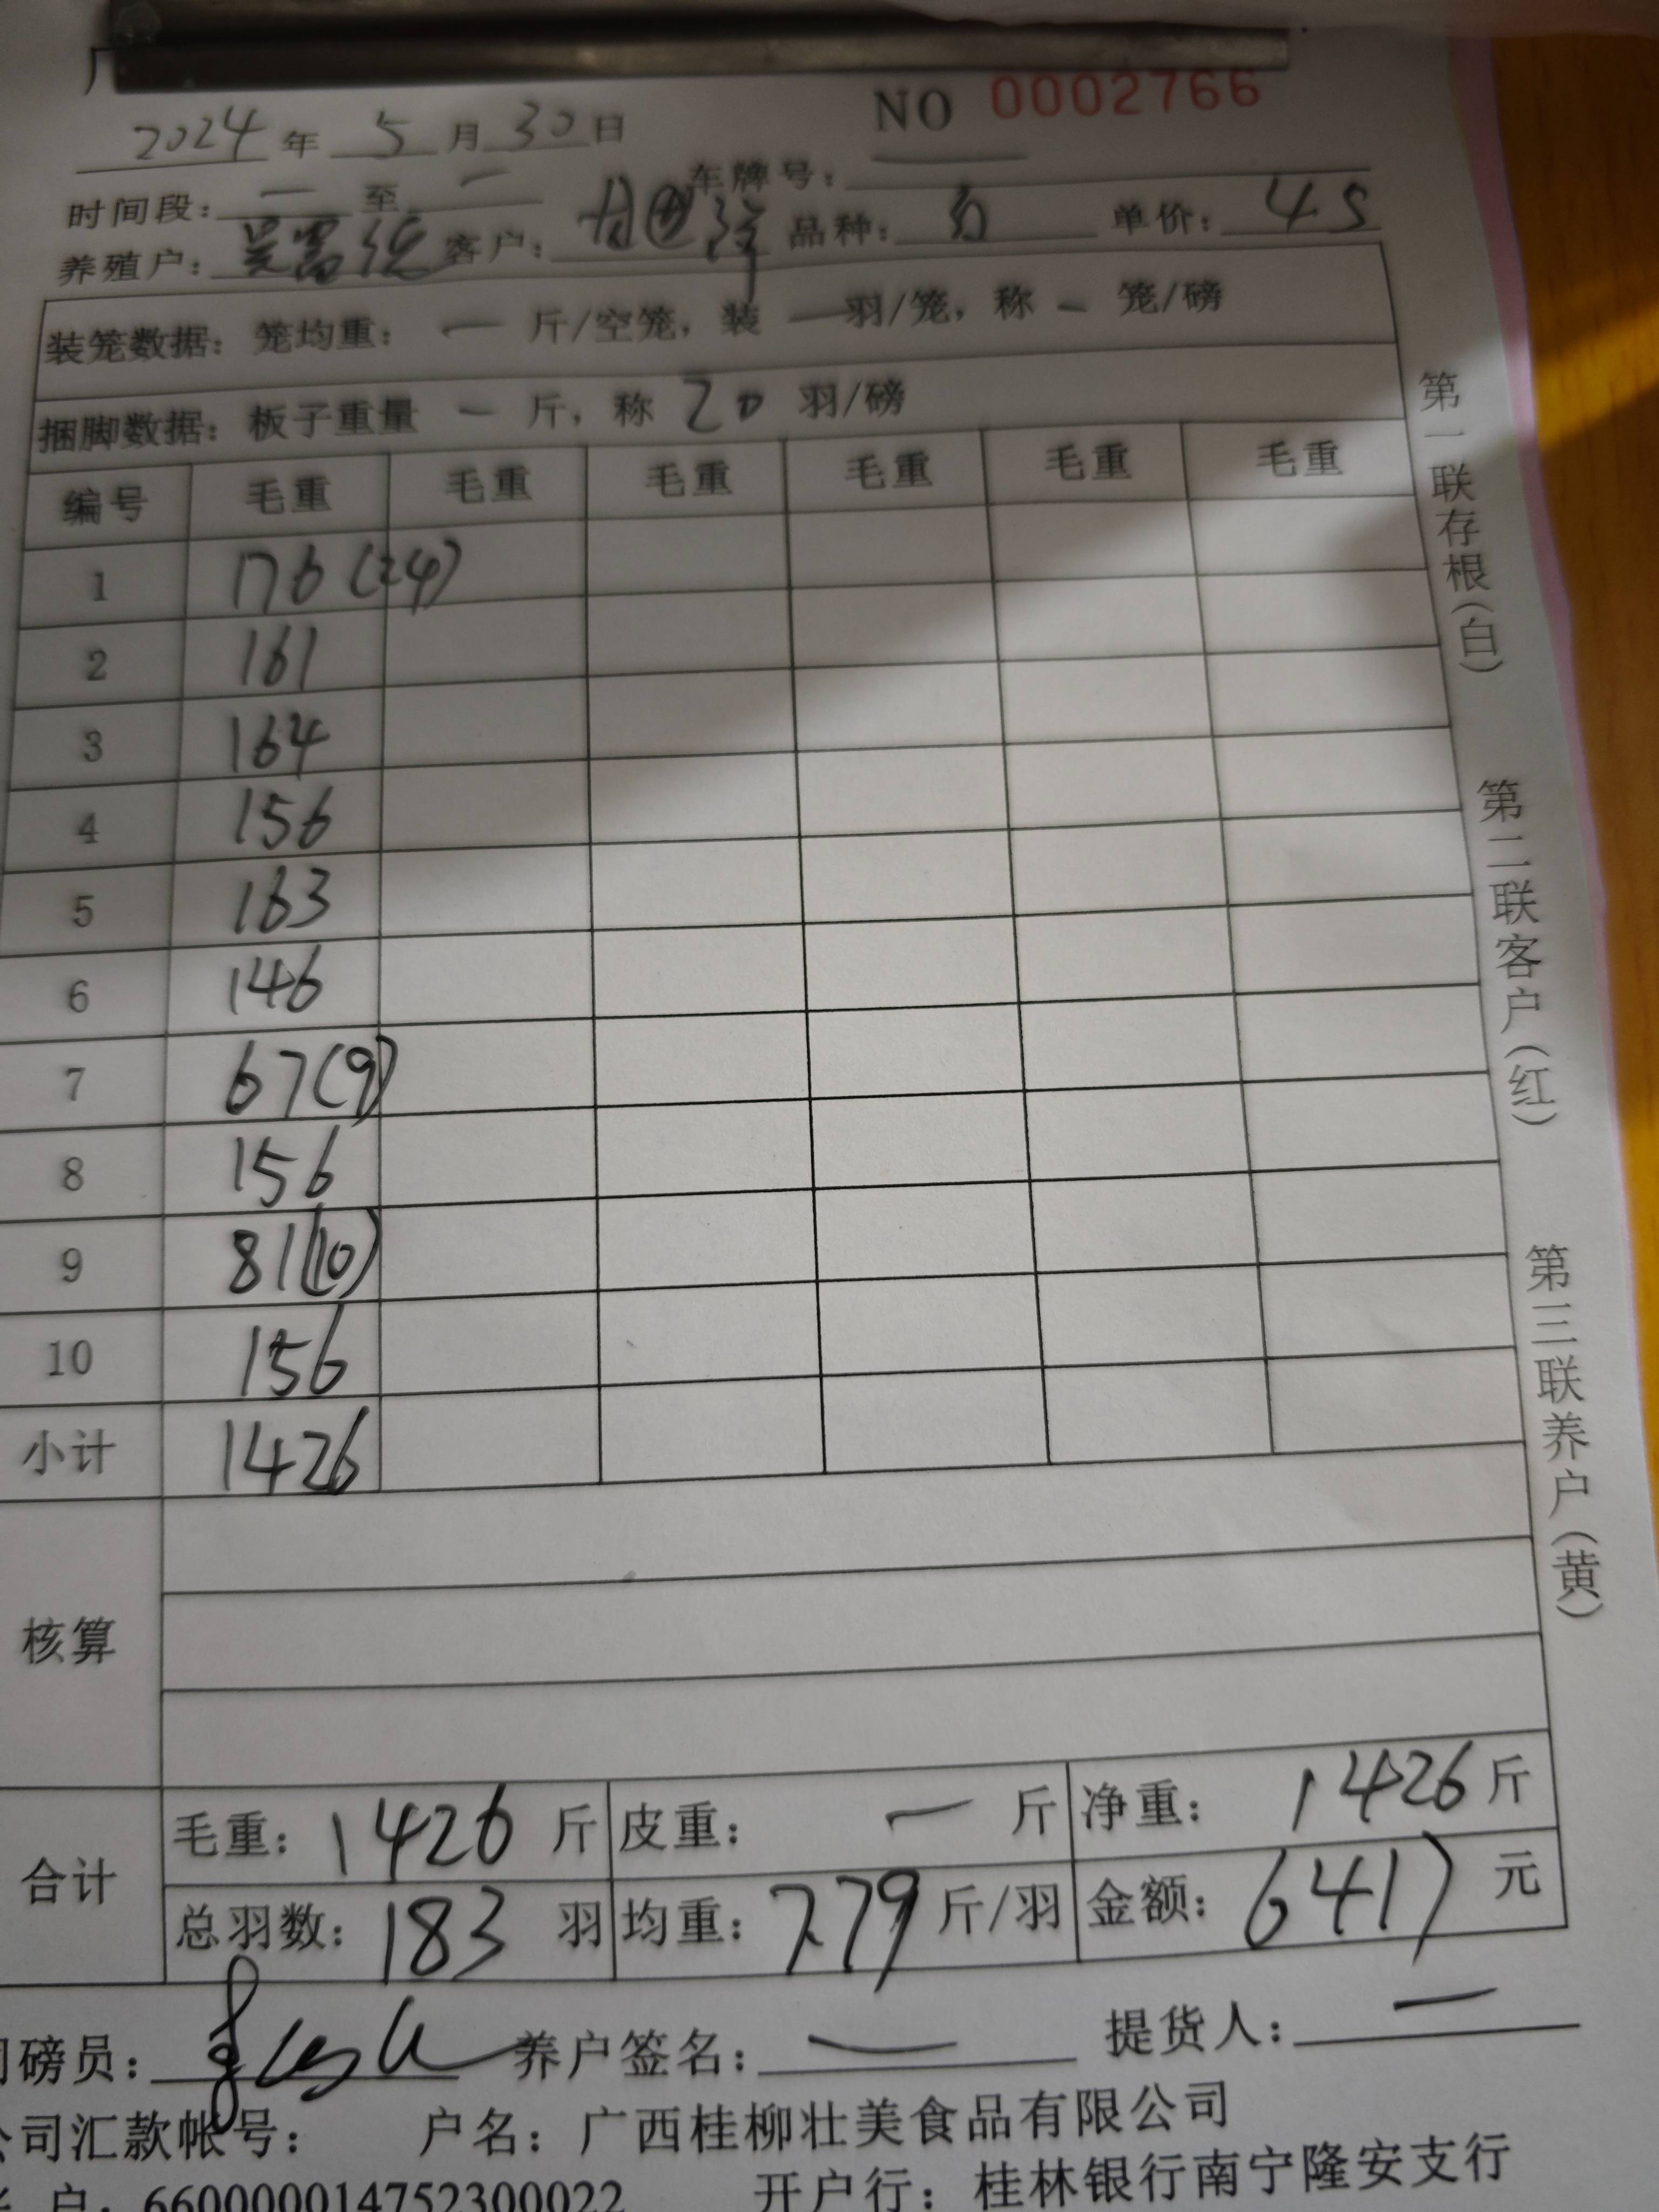 NO 0002766
2024年 5月30日
时间段：一 至 一 车牌号：
养殖户： 客户： 品种： 单价：45
装笼数据：笼均重：一 斤/空笼，装 一 羽/笼，称 一 笼/磅
捆脚数据：板子重量 一 斤，称 20 羽/磅
编号 毛重 毛重 毛重 毛重 毛重 毛重
1 176(24)
2 161
3 164
4 156
5 163
6 146
7 67(9)
8 156
9 81(10)
10 156
小计 1426
核算
合计 毛重：1426 斤 皮重：一 斤 净重：1426 斤
总羽数：183 羽 均重：7.79 斤/羽 金额：6417 元
磅员： 养户签名：一 提货人：一
公司汇款帐号： 户名：广西桂柳壮美食品有限公司
户：660000014752300022 开户行：桂林银行南宁隆安支行
第一联存根(白)
第二联客户(红)
第三联养户(黄)